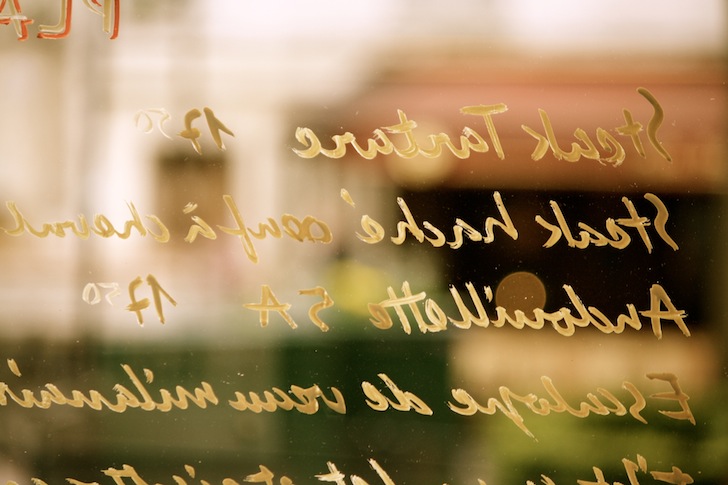 PLA
Steak Tartare 17 50
Steak haché oeuf à cheval
Andouillette 5A 17 50
Escalope de veau milanais